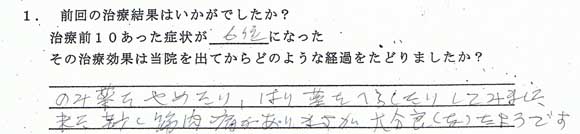 1. 前回の治療結果はいかがでしたか？
治療前10あった症状が 6位 になった
その治療効果は当院を出てからどのような経過をたどりましたか？
のみ薬をやめたり、はり薬をへらしたりしてみました
まだ少し筋肉痛がありますが大分良くなったようです